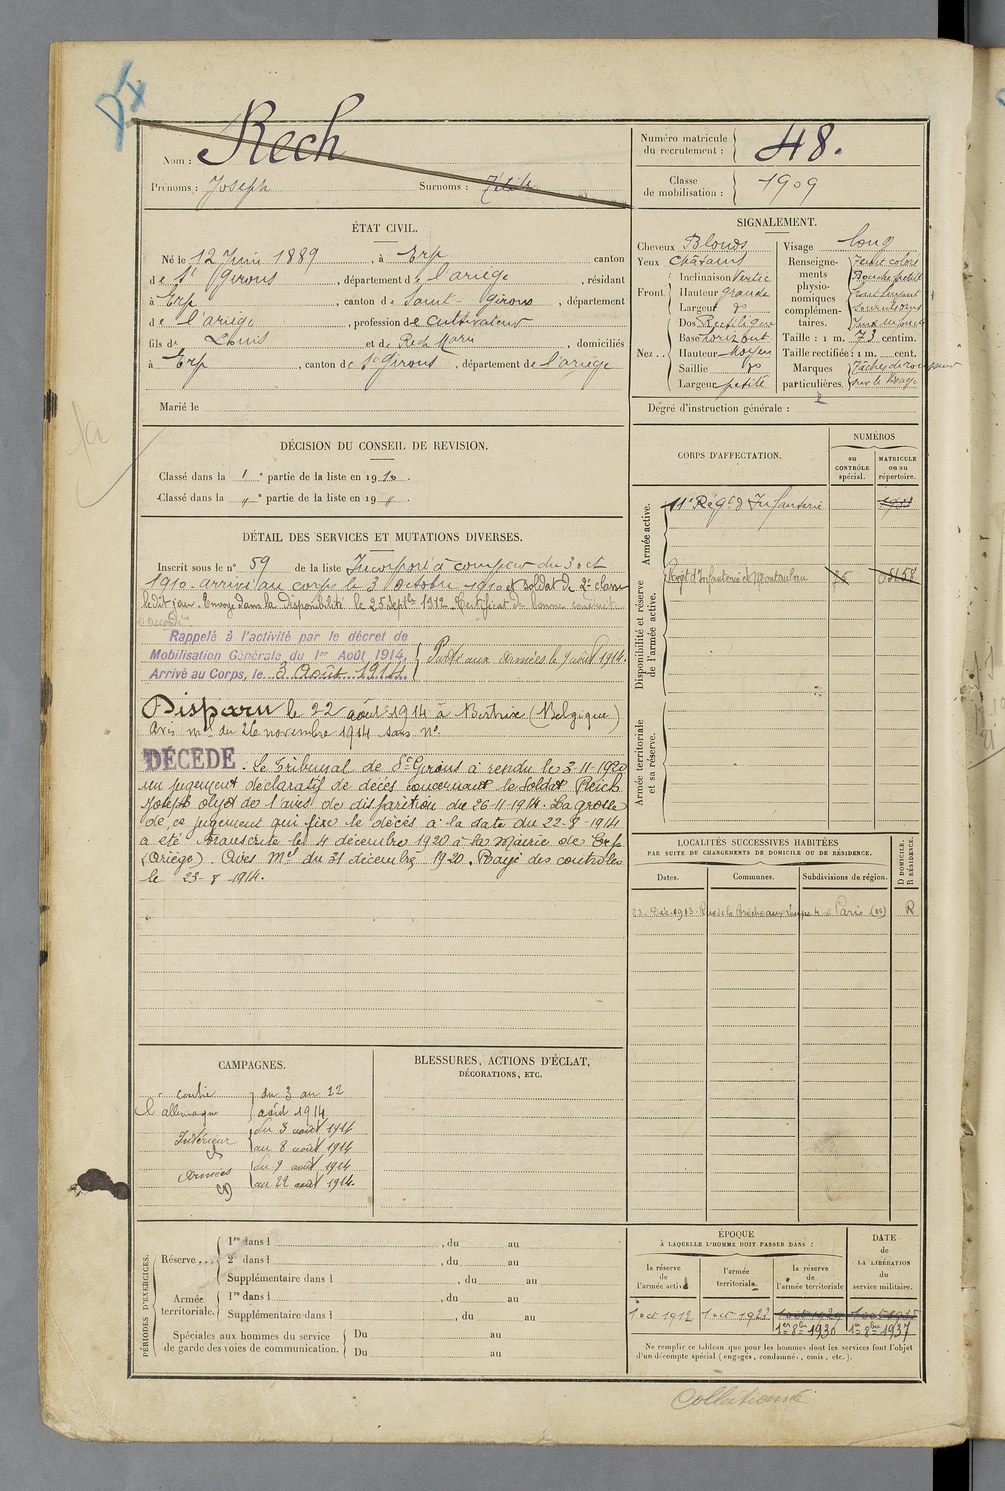 Nom : Rech
Prénoms : Joseph Surnoms :
Numéro matricule
du recrutement : 48.
Classe
de mobilisation : 1909
ÉTAT CIVIL.
Né le 12 Juin 1889, à Erp, canton
de St Girons, département de l'ariège, résidant
à Erp, canton de Saint-Girons, département
de l'ariège, profession de cultivateur
fils de Louis et de Rech Marie, domiciliés
à Erp, canton de St Girons, département de l'ariège
Marié le
SIGNALEMENT.
Cheveux Blonds
Yeux Châtains
Front. Inclinaison Vertic
Hauteur grande
Largeur
Nez. Dos Rectiligne
Base horizont
Hauteur Moyen
Saillie
Largeur petite
Visage long
Renseignements
physionomiques
complémentaires. Teint coloré
Bouche petite
Taille : 1 m. 73 centim.
Taille rectifiée : 1 m. cent.
Marques
particulières. Tâches de rousseur
sur le visage
Dégré d'instruction générale : 2
DÉCISION DU CONSEIL DE REVISION.
Classé dans la 1e partie de la liste en 1910.
Classé dans la " e partie de la liste en 19 ".
DÉTAIL DES SERVICES ET MUTATIONS DIVERSES.
Inscrit sous le n° 59 de la liste Incorporé à compter du 3 oct
1910. arrivé au corps le 3 Octobre 1910 et soldat de 2e classe
ledit jour. Envoyé dans la disponibilité le 25 Septbre 1912. Certificat de bonne conduite
accordé.
Rappelé à l'activité par le décret de
Mobilisation Générale du 1er Août 1914.
Arrivé au Corps, le 3 Août 1914.
Passé aux armées le 9 août 1914.
Disparu le 22 août 1914 à Bertrix (Belgique)
Avis mel du 26 novembre 1914 sans n°.
DÉCÉDÉ. Le Tribunal de St Girons a rendu le 3-11-1920
un jugement déclaratif de décès concernant le soldat Rech
Joseph objet de l'avis de disparition du 26-11-1914. La grosse
de ce jugement qui fixe le décès à la date du 22-8-1914
a été transcrite le 4 décembre 1920 à la Mairie de Erp
(Ariège). Avis Mel du 31 décembre 1920. Rayé des contrôles
le 23-8-1914.
CORPS D'AFFECTATION.
NUMÉROS
au
CONTRÔLE
spécial.
MATRICULE
ou au
répertoire.
Armée active.
11e Régt d'Infanterie
Disponibilité et réserve
de l'armée active.
Régt d'Infanterie de Montauban
Armée territoriale
et sa réserve.
LOCALITÉS SUCCESSIVES HABITÉES
PAR SUITE DE CHANGEMENTS DE DOMICILE OU DE RÉSIDENCE.
Dates. Communes. Subdivisions de région.
D DOMICILE.
R RÉSIDENCE.
23 Déc. 1913 Rue de la Brèche aux Loups 4 à Paris (12) R
CAMPAGNES.
contre
l'allemagne du 3 au 22
août 1914
Intérieur du 3 août 1914
au 8 août 1914
Armées du 9 août 1914
au 22 août 1914.
BLESSURES, ACTIONS D'ÉCLAT,
DÉCORATIONS, ETC.
PÉRIODES D'EXERCICES.
Réserve... 1re dans l , du au
2e dans l , du au
Supplémentaire dans l , du au
Armée
territoriale. 1re dans l , du au
Supplémentaire dans l , du au
Spéciales aux hommes du service
de garde des voies de communication. Du au
Du au
ÉPOQUE
À LAQUELLE L'HOMME DOIT PASSER DANS :
la réserve
de
l'armée active
l'armée
territoriale.
la réserve
de
l'armée territoriale
DATE
de
LA LIBÉRATION
du
service militaire.
1 oct 1912 1 oct 1923 1 oct 1929 1 oct 1935
1er 8bre 1930 1er 8bre 1937
Ne remplir ce tableau que pour les hommes dont les services font l'objet
d'un décompte spécial (engagés, condamnés, omis, etc.).
Collationné